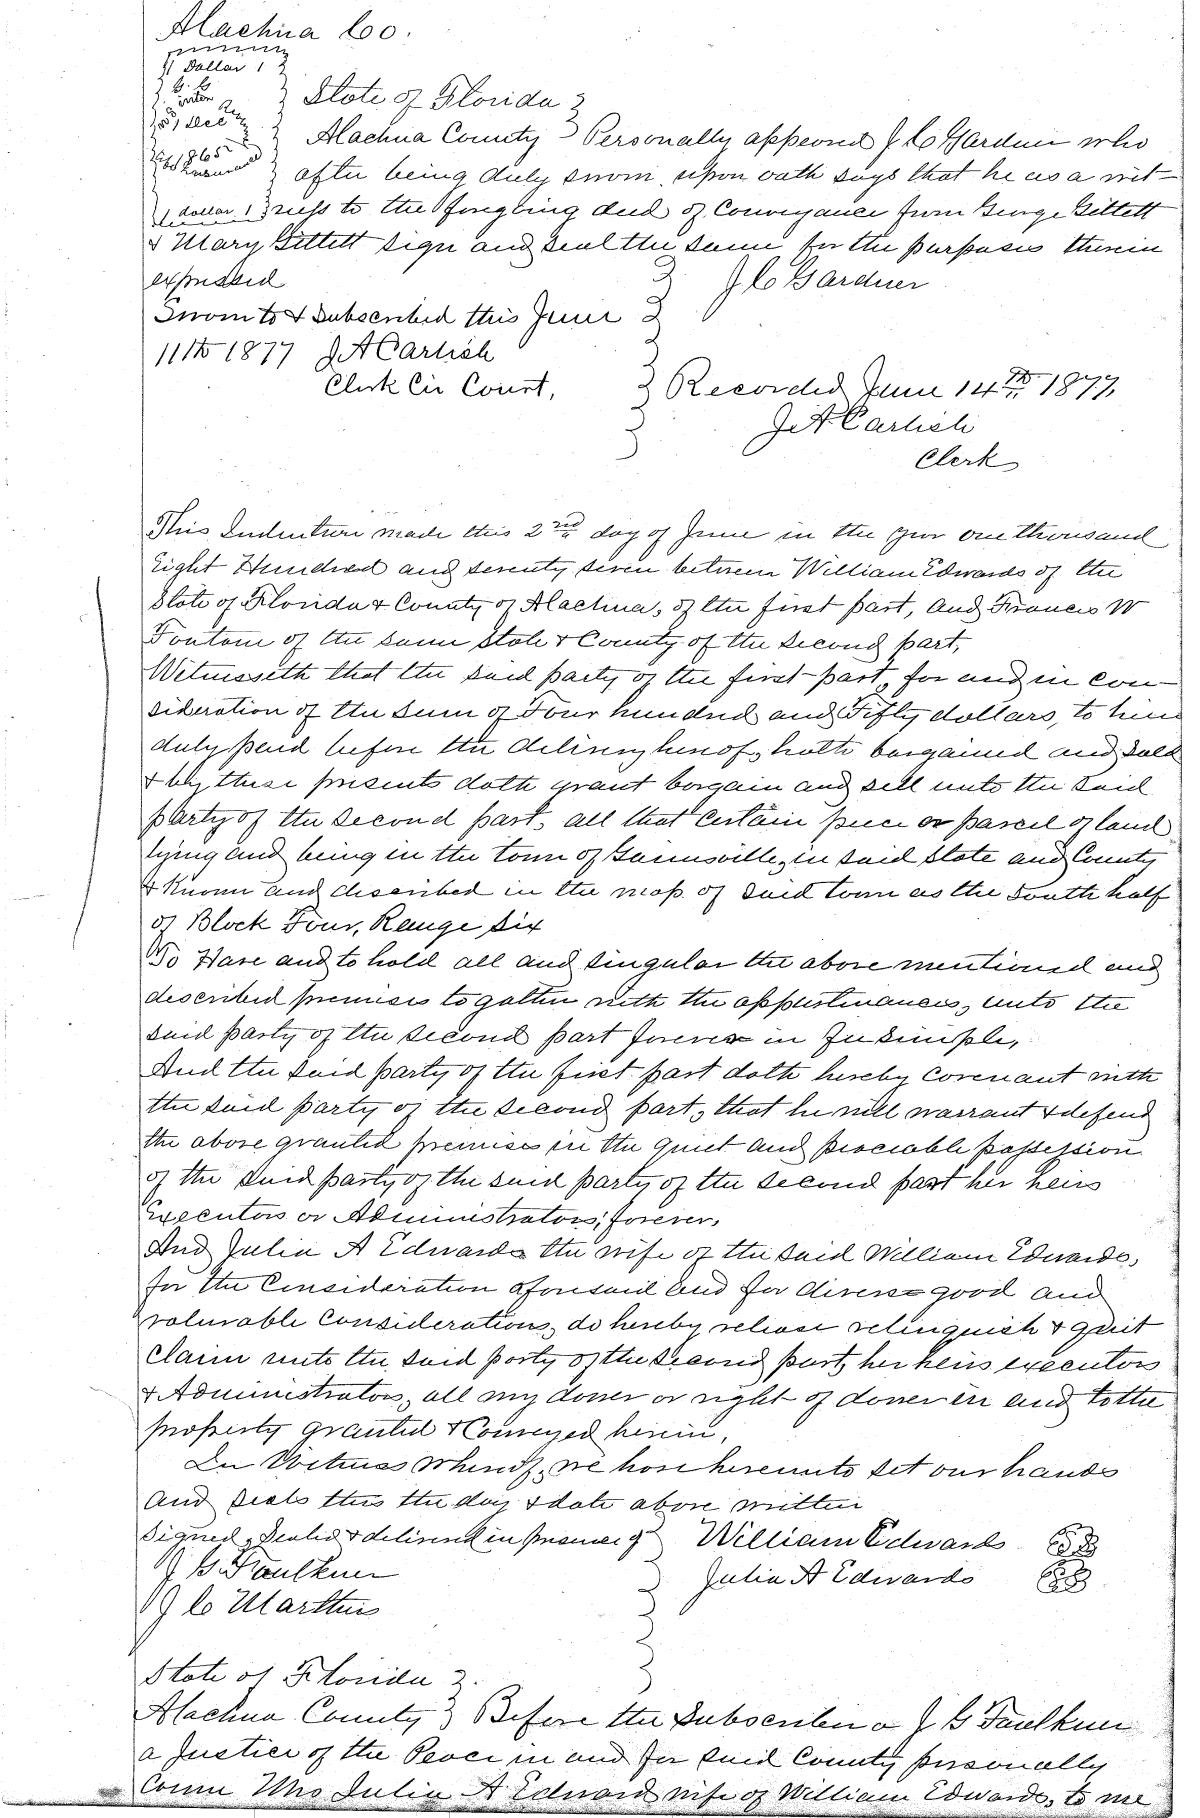 Alachua Co.
1 Dollar 1
State of Florida
Dec
Alachua County Personally appeared J C Gardner who
1865
after being duly sworn, upon oath says that he as a wit-
1 dollar 1 ness to the foregoing deed of Conveyance from George Gillett
& Mary Gillett sign and seal the same for the purposes therein
expressed J C Gardner
Sworn to & Subscribed this June
11th 1877 J A Carlisle
Clerk Cir Court,
Recorded June 14th 1877,
J A Carlisle
Clerk
This Indenture made this 2nd day of June in the year one thousand
Eight Hundred and seventy seven between William Edwards of the
State of Florida & County of Alachua, of the first part, and Francis W
of the same State & County of the second part,
Witnesseth that the said party of the first part, for and in con-
sideration of the sum of Four hundred and Fifty dollars, to him
duly paid before the delivery hereof, hath bargained and sold
& by these presents doth grant bargain and sell unto the said
party of the second part, all that certain piece or parcel of land
lying and being in the town of Gainesville, in said State and County
& Known and described in the map of said town as the South half
of Block Four, Range Six
To Have and to hold all and singular the above mentioned and
described premises together with the appurtinances, unto the
said party of the second part forever in fee simple,
And the said party of the first part doth hereby covenant with
the said party of the second part, that he will warrant & defend
the above granted premises in the quiet and peaceable possession
of the said party of the said party of the second part her heirs
Executors or Administrators, forever,
And Julia A Edwards the wife of the said William Edwards,
for the Consideration aforesaid and for divers good and
valuable Considerations, do hereby release relinquish & quit
Claim unto the said party of the second part, her heirs executors
& Administrators, all my dower or right of dower in and to the
property granted & Conveyed herein,
In Witness Whereof, we have hereunto set our hands
and seals this the day & date above written
Signed, Sealed & delivered in presence of William Edwards
J G Faulkner
Julia A Edwards
J C
State of Florida
Alachua County Before the Subscriber a J G Faulkner
a Justice of the Peace in and for said County personally
Came Mrs Julia A Edward wife of William Edwards, to me